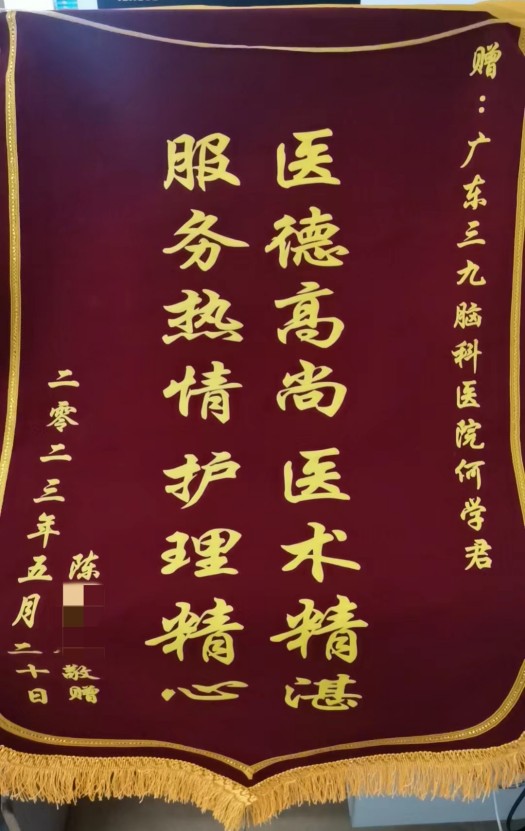 赠：广东三九脑科医院何学君
医德高尚 医术精湛
服务热情 护理精心
陈
敬赠
二零二三年五月二十日